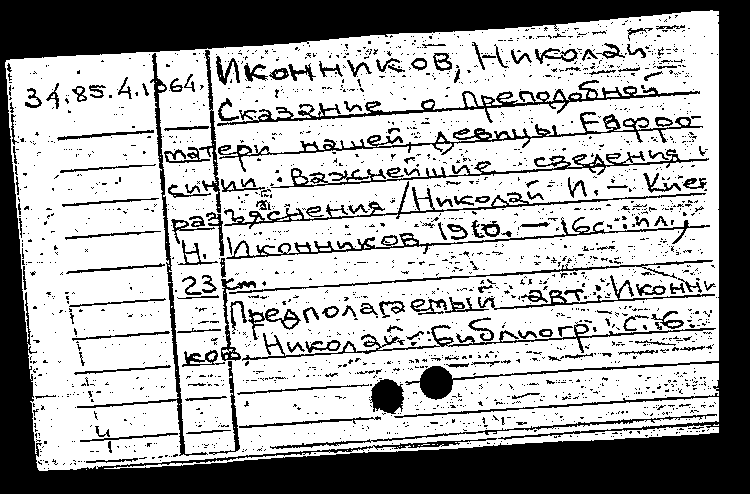 34.85.4.1364. Иконников, Николай
Сказание о Преподобной
матери нашей, девицы Евфро-
синии: Важнейшие сведения и
разъяснения /Николай И. – Киев
Н. Иконников, 1910. – 16с.: ил.;
23 см.
Предполагаемый авт.: Иконни-
ков, Николай. Библиогр.: С. 6.